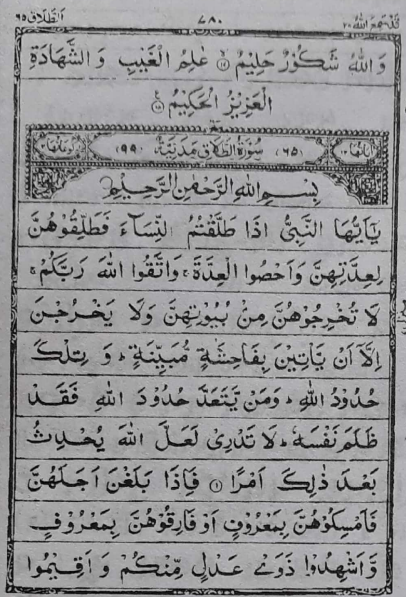 قد سمع الله ٢٨ ٧٨٠ الطلاق ٦٥
وَاللهُ شَكُوْرٌ حَلِيْمٌ ۙ﴿۱۷﴾ عٰلِمُ الْغَيْبِ وَ الشَّهَادَةِ
الْعَزِيْزُ الْحَكِيْمُ ﴿۱۸﴾
اٰيَاتُهَا ١٢ (٦٥) سُوْرَةُ الطَّلَاقِ مَدَنِيَّةٌ (٩٩) رُكُوْعَاتُهَا ٢
بِسْمِ اللهِ الرَّحْمٰنِ الرَّحِيْمِ
يٰۤاَيُّهَا النَّبِيُّ اِذَا طَلَّقْتُمُ النِّسَآءَ فَطَلِّقُوْهُنَّ
لِعِدَّتِهِنَّ وَ اَحْصُوا الْعِدَّةَ ۚ وَاتَّقُوا اللهَ رَبَّكُمْ ۚ
لَا تُخْرِجُوْهُنَّ مِنْۢ بُيُوْتِهِنَّ وَلَا يَخْرُجْنَ
اِلَّاۤ اَنْ يَّاْتِيْنَ بِفَاحِشَةٍ مُّبَيِّنَةٍ ؕ وَ تِلْكَ
حُدُوْدُ اللهِ ؕ وَمَنْ يَّتَعَدَّ حُدُوْدَ اللهِ فَقَدْ
ظَلَمَ نَفْسَهٗ ؕ لَا تَدْرِيْ لَعَلَّ اللهَ يُحْدِثُ
بَعْدَ ذٰلِكَ اَمْرًا ﴿۱﴾ فَاِذَا بَلَغْنَ اَجَلَهُنَّ
فَاَمْسِكُوْهُنَّ بِمَعْرُوْفٍ اَوْ فَارِقُوْهُنَّ بِمَعْرُوْفٍ
وَّاَشْهِدُوْا ذَوَيْ عَدْلٍ مِّنْكُمْ وَ اَقِيْمُوا